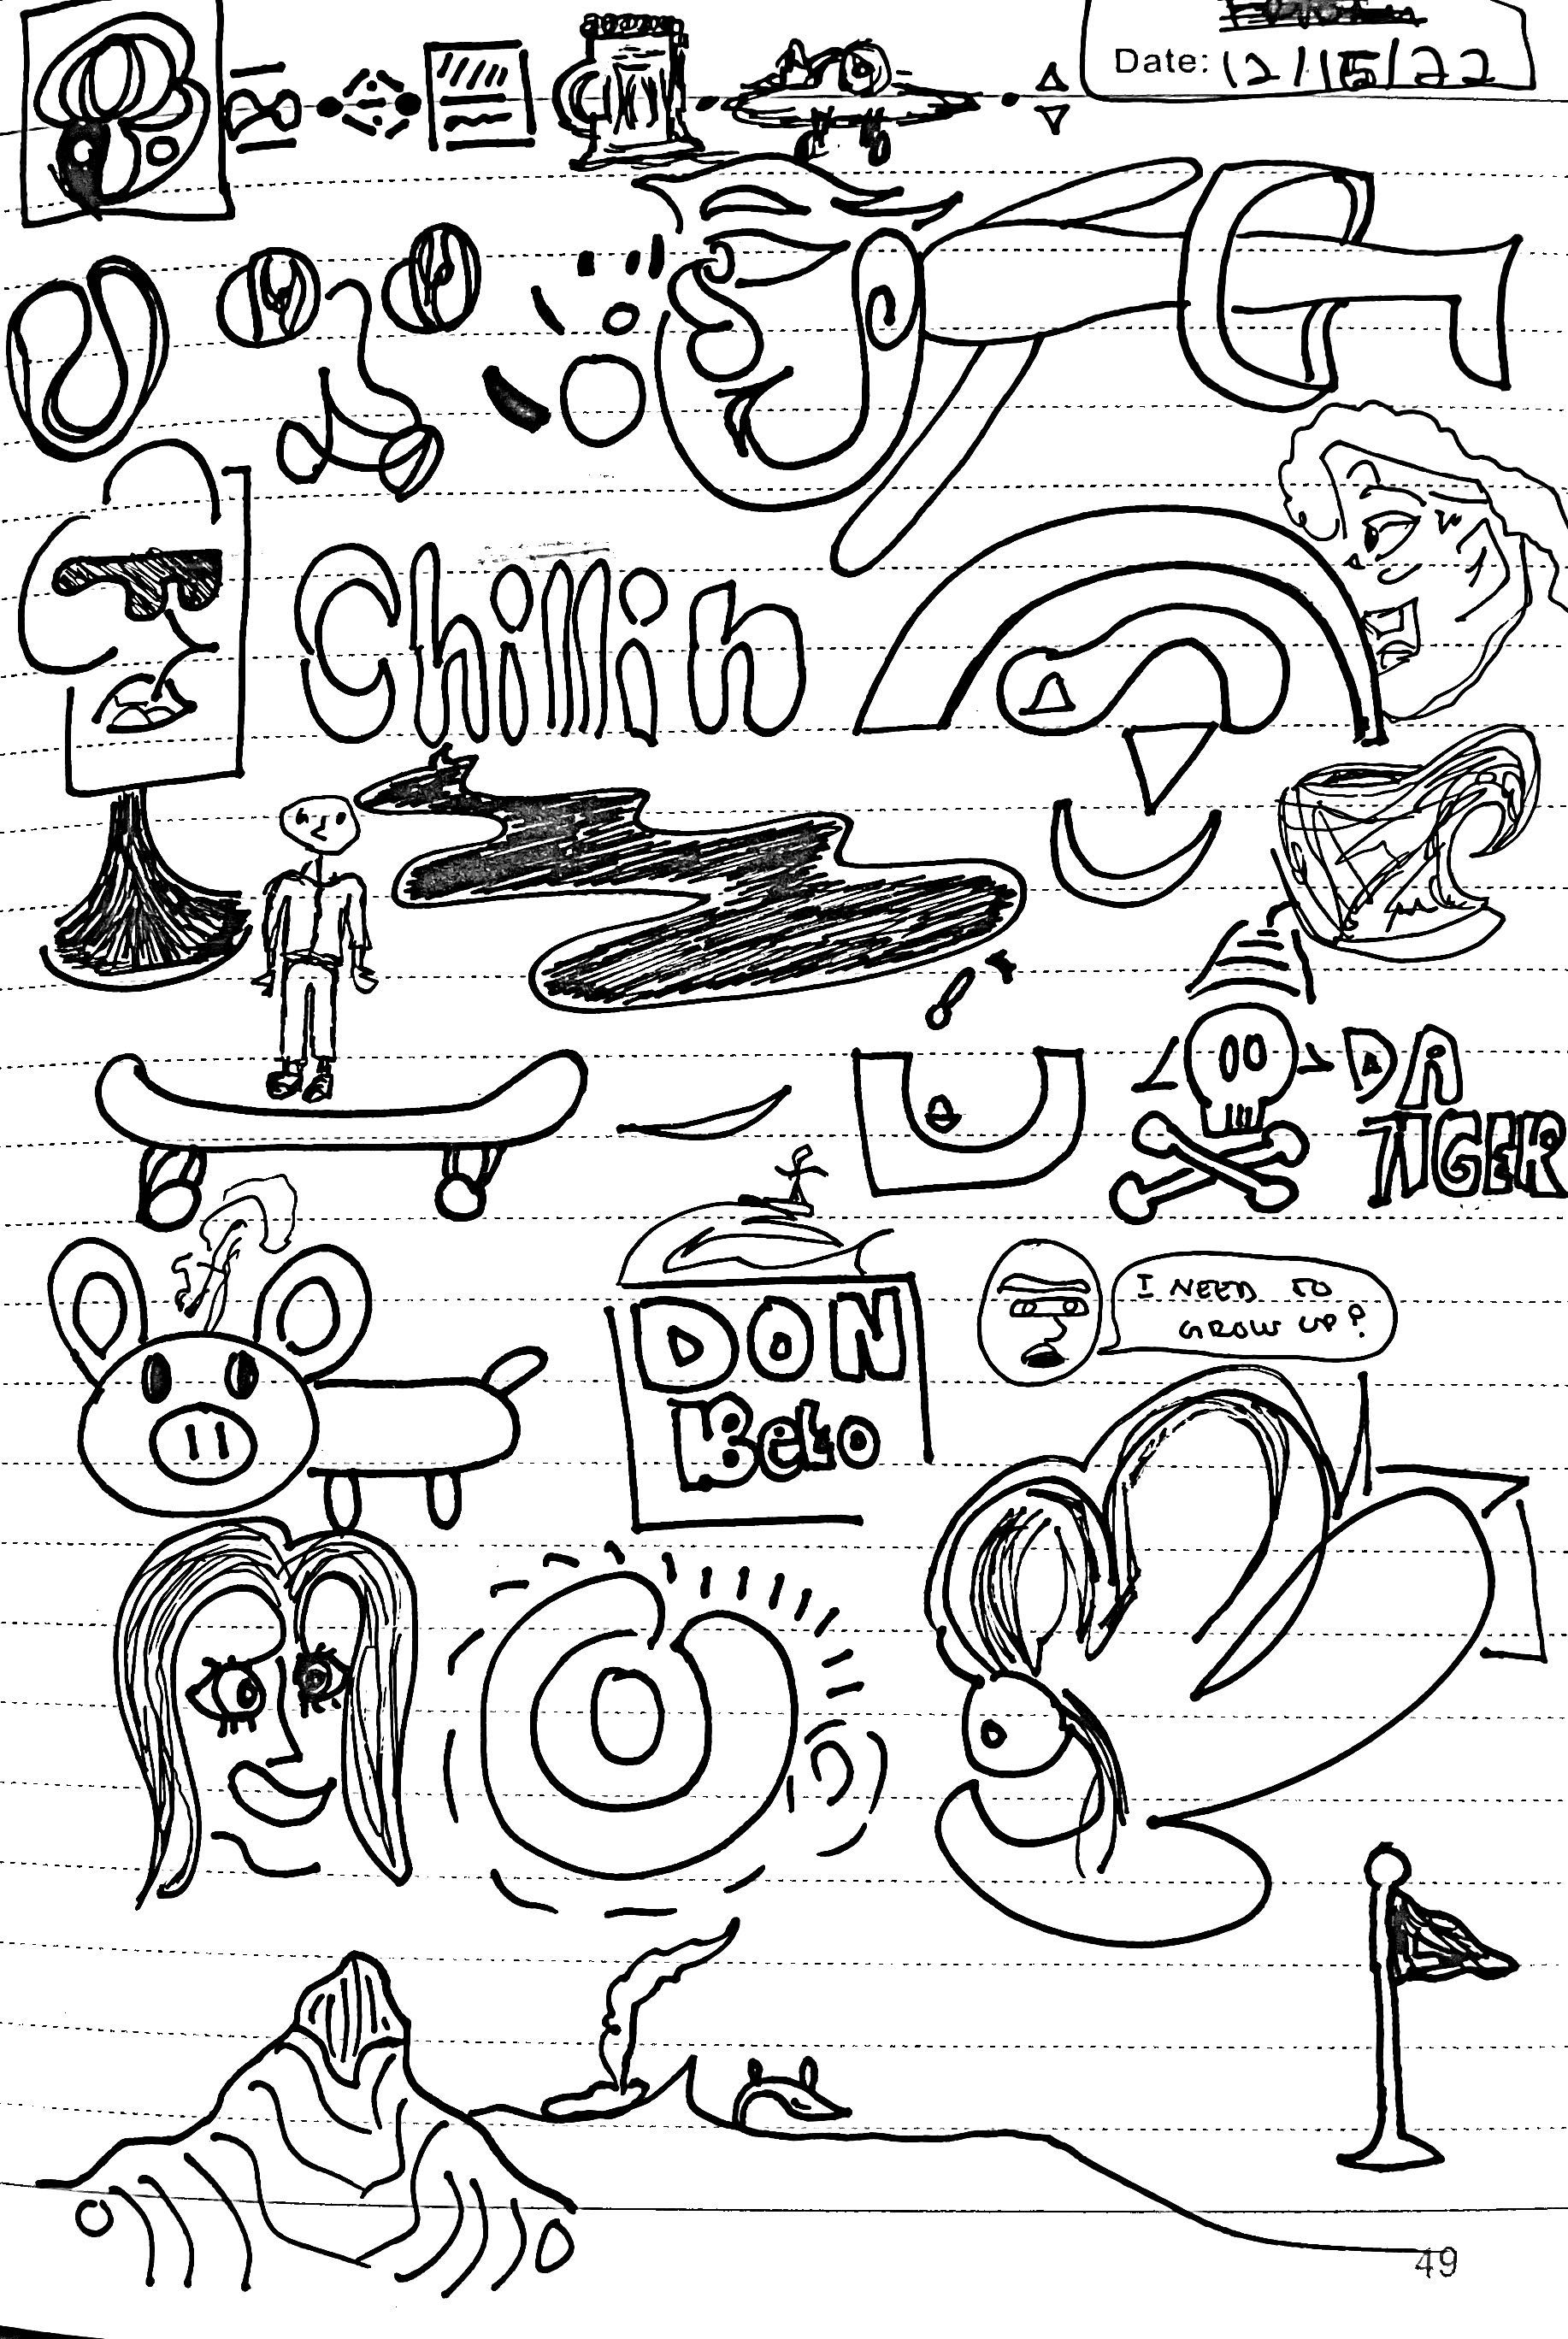 Date: 12/15/22
Chillin
DA
TIGER
DON
I NEED TO
GROW UP?
49